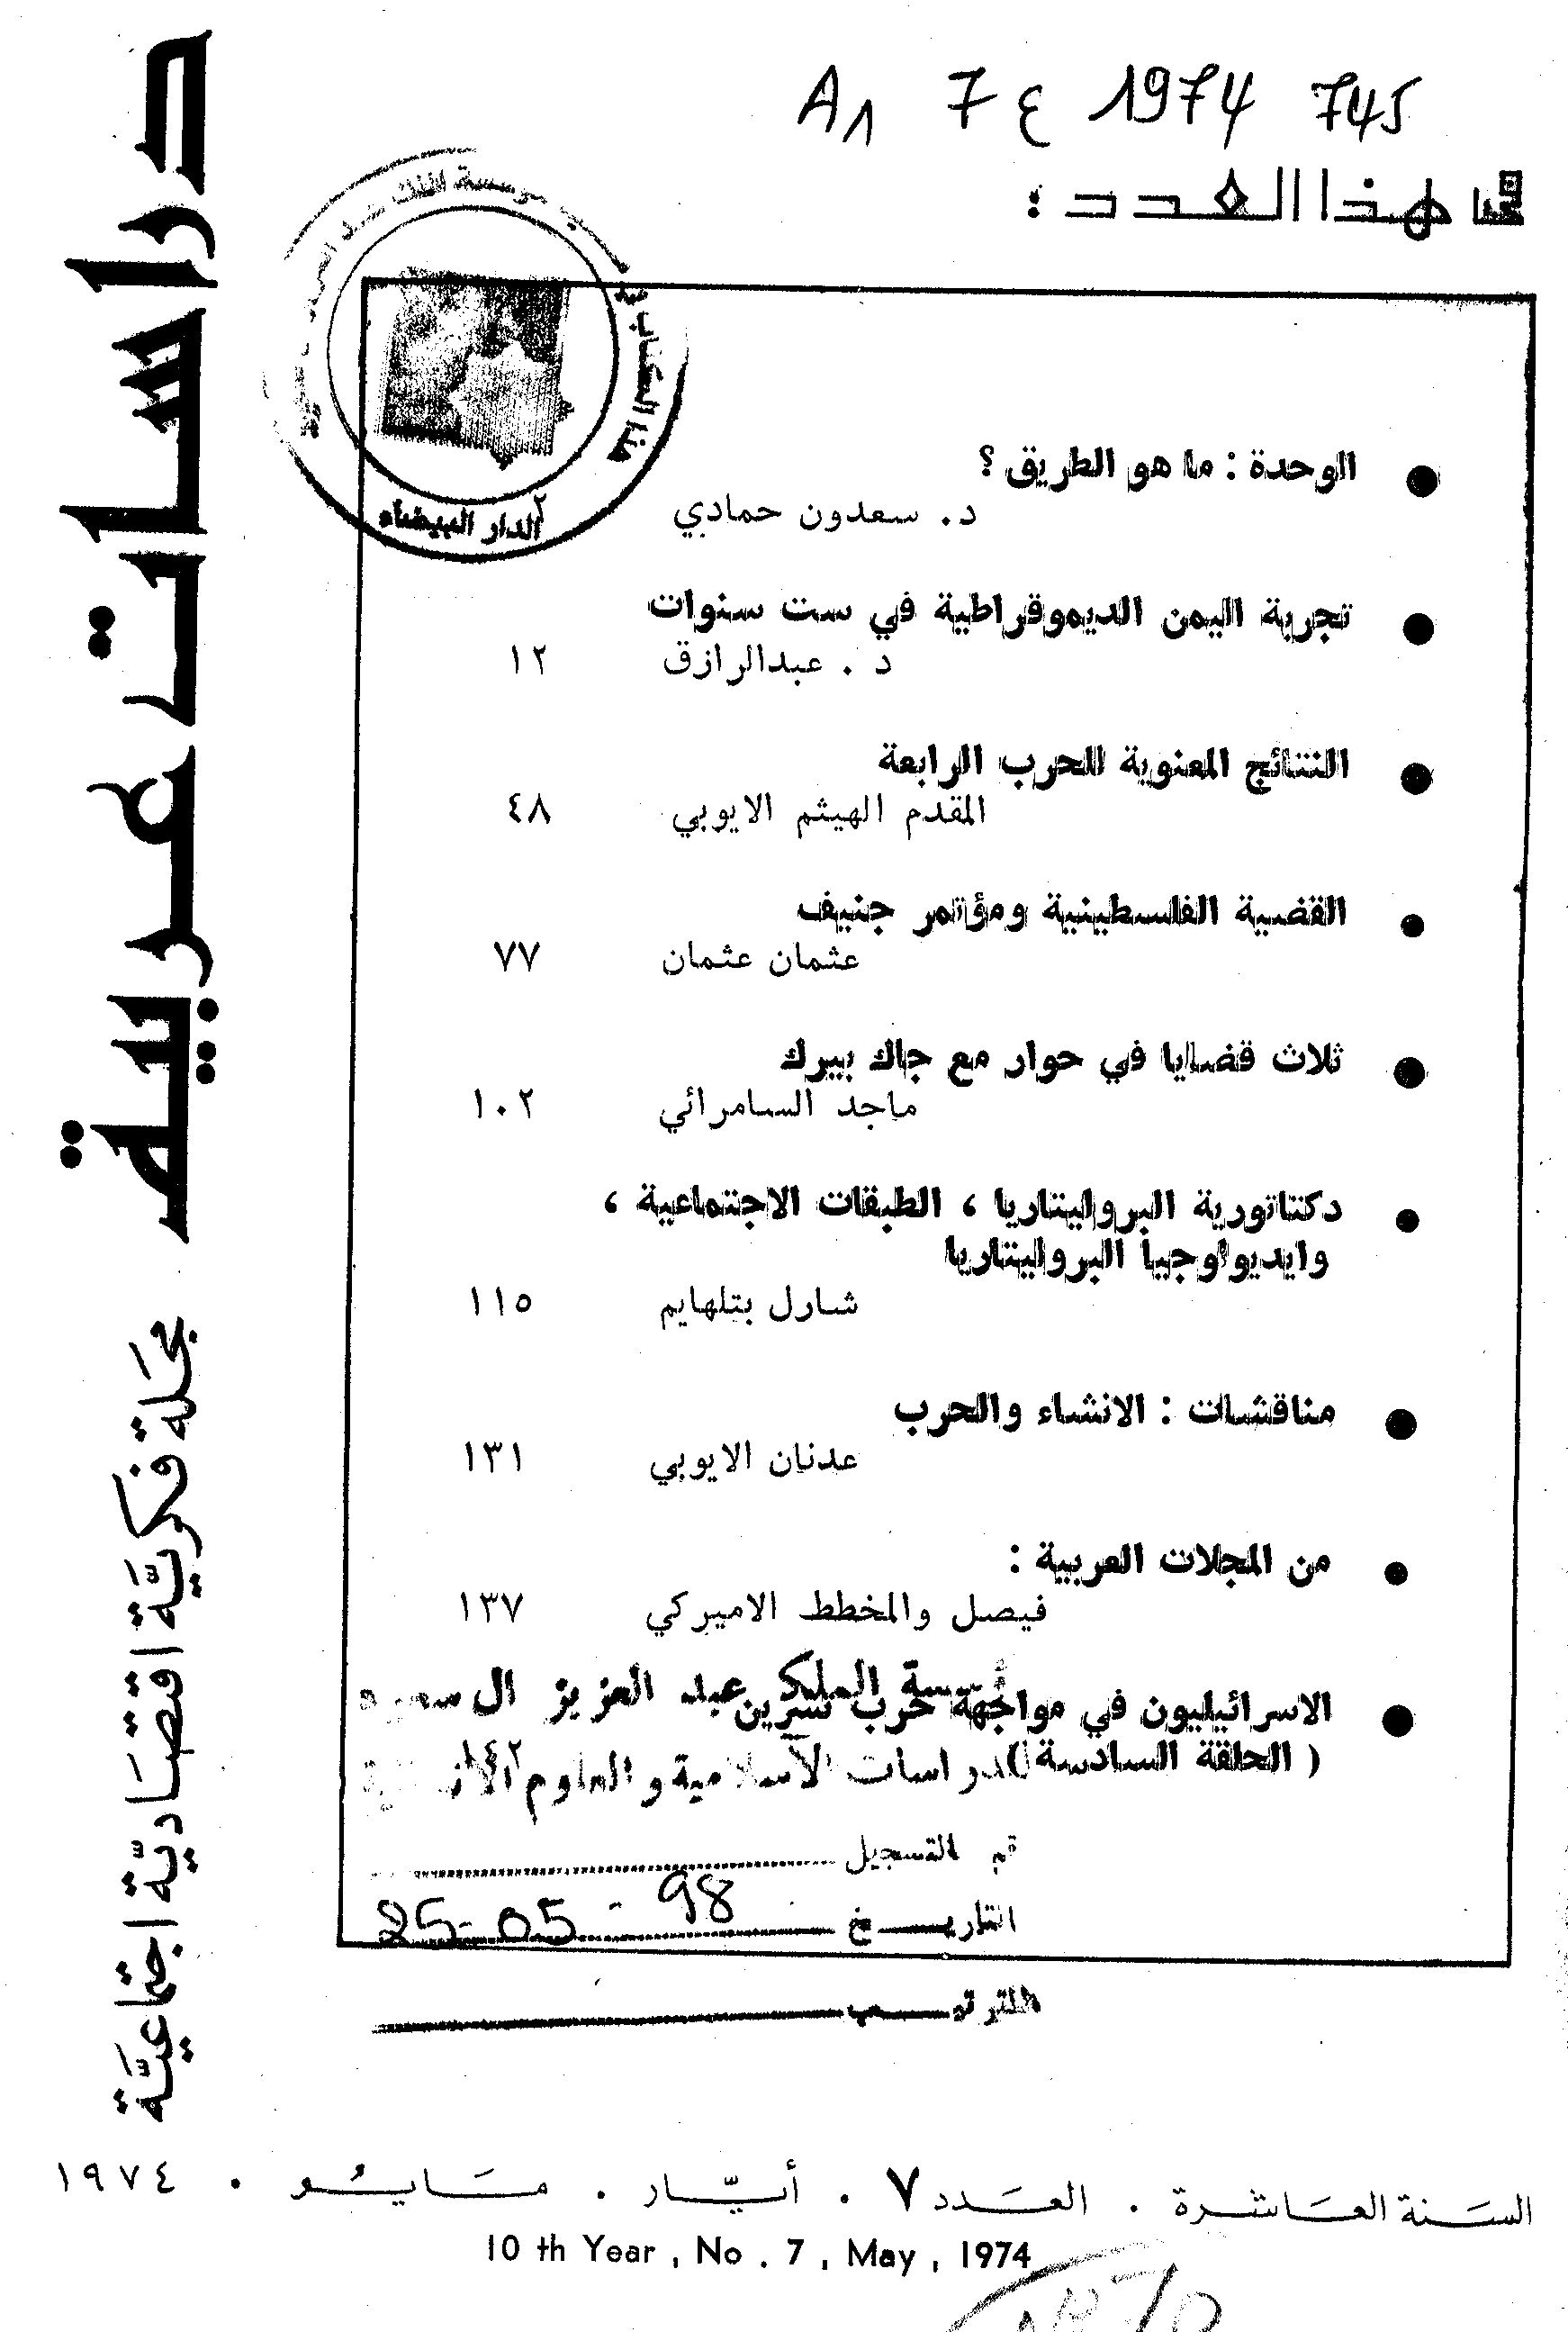 A1 7 ع 1974 745
في هذا العدد :
الوحدة : ما هو الطريق ؟
د. سعدون حمادي ٢
تجربة اليمن الديموقراطية في ست سنوات
د . عبدالرازق ١٢
النتائج المعنوية للحرب الرابعة
المقدم الهيثم الايوبي ٤٨
القضية الفلسطينية ومؤتمر جنيف
عثمان عثمان ٧٧
ثلاث قضايا في حوار مع جاك بيرك
ماجد السامرائي ١٠٢
دكتاتورية البروليتاريا ، الطبقات الاجتماعية ،
وايديولوجيا البروليتاريا
شارل بتلهايم ١١٥
مناقشات : الانشاء والحرب
عدنان الايوبي ١٣١
من المجلات العربية :
فيصل والمخطط الاميركي ١٣٧
الاسرائيليون في مواجهة حرب تشرين
( الحلقة السادسة ) ١٤٢
الملك عبد العزيز ال سعود
للدراسات الاسلامية والعلوم الانسانية
تم التسجيل
التاريخ 25-05-98
الدار البيضاء
هذا الكتاب
دراسات عربية
مجلة فكريّة اقتصاديّة اجتماعيّة
السَنة العَاشرة . العَدد ٧ . أيّار . مَايُو . ١٩٧٤
10 th Year , No . 7 , May , 1974